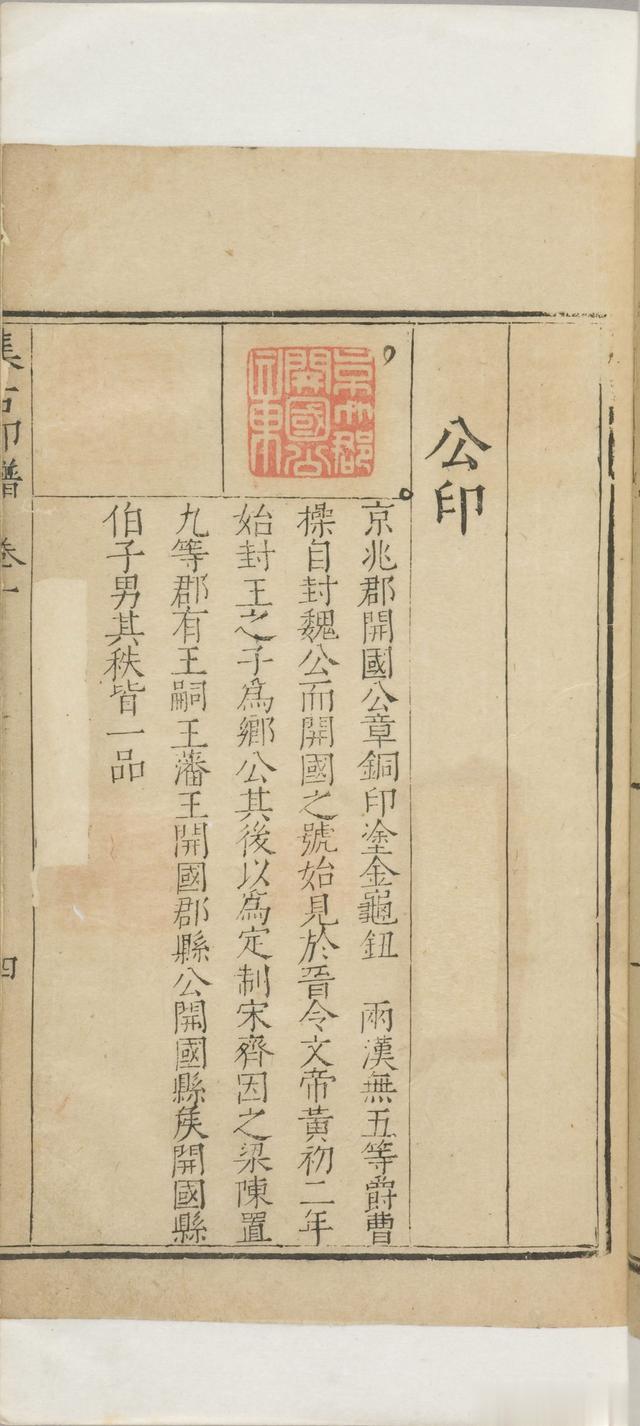 公印
京兆郡開國公章
京兆郡開國公章銅印塗金龜鈕　兩漢無五等爵曹
操自封魏公而開國之號始見於晉令文帝黃初二年
始封王之子爲鄉公其後以爲定制宋齊因之梁陳置
九等郡有王嗣王藩王開國郡縣公開國縣矦開國縣
伯子男其秩皆一品
集古印譜　卷一
四